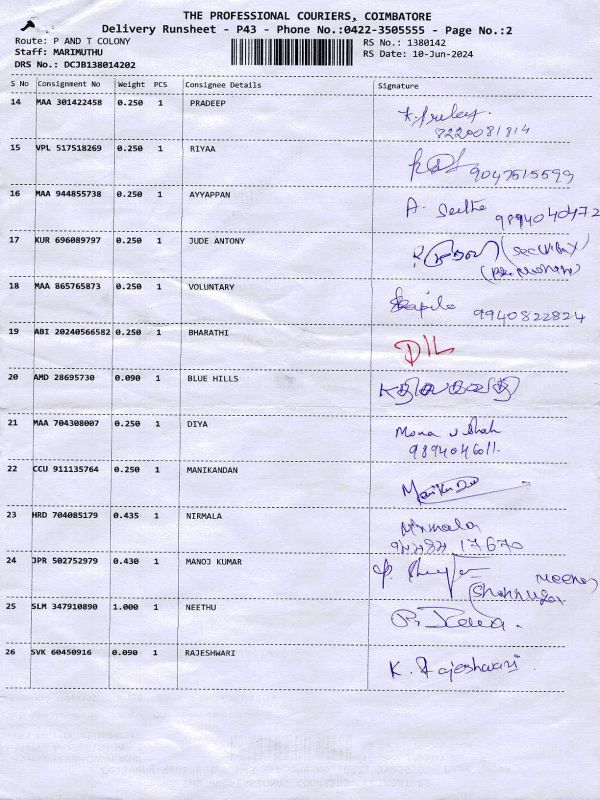 THE PROFESSIONAL COURIERS, COIMBATORE
Delivery Runsheet - P43 - Phone No.:0422-3505555 - Page No.:2
Route: P AND T COLONY
Staff: MARIMUTHU
DRS No.: DCJB138014202
RS No.: 1380142
RS Date: 10-Jun-2024
S No Consignment No Weight PCS Consignee Details Signature
14 MAA 301422458 0.250 1 PRADEEP
8220081814
15 VPL 517518269 0.250 1 RIYAA
9047515599
16 MAA 944855738 0.250 1 AYYAPPAN A. Seetha
9894040472
17 KUR 696089797 0.250 1 JUDE ANTONY (Security)
18 MAA 865765873 0.250 1 VOLUNTARY Kapila 9940822824
19 ABI 20240566582 0.250 1 BHARATHI D/L
20 AMD 28695730 0.090 1 BLUE HILLS
21 MAA 704308007 0.250 1 DIYA Mona v Shah
9894046011.
22 CCU 911135764 0.250 1 MANIKANDAN
23 HRD 704085179 0.435 1 NIRMALA Nirmala
17670
24 JPR 502752979 0.430 1 MANOJ KUMAR
25 SLM 347910890 1.000 1 NEETHU
26 SVK 60450916 0.090 1 RAJESHWARI K. Rajeshwari.